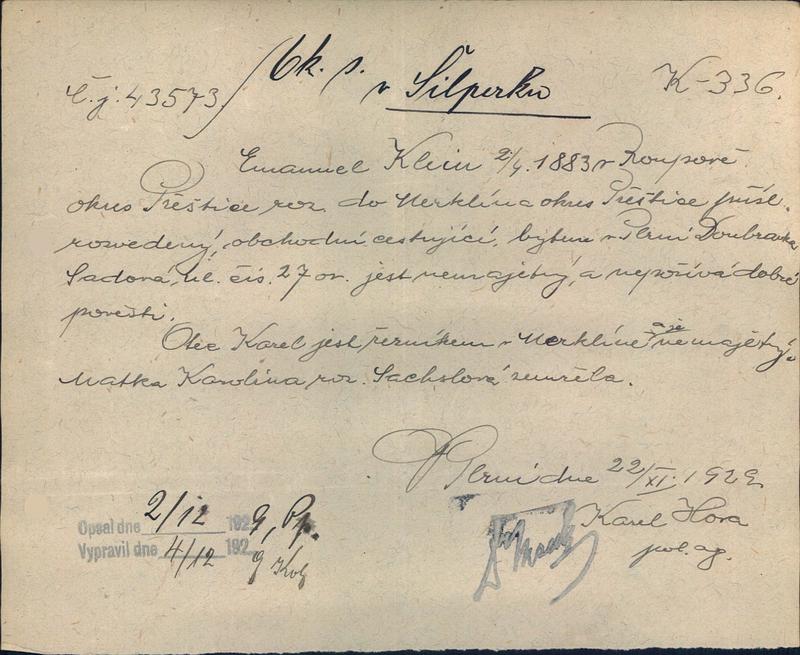 Č.j. 43573 / Ok. s. v Šilperku K-336.
Emanuel Klein 2/4. 1883 v Roupově
okres Přeštice roz. do Merklína okres Přeštice přísl.
rozvedený, obchodní cestující, bytem v Plzni Doubravka
Sadová ul. čís. 27 on. jest nemajetný, a nepožívá dobré
pověsti.
Otec Karel jest řezníkem v Merklíně a je nemajetný.
Matka Karolina roz. Sachslová zemřela.
V Plzni dne 22/XI. 1929
Karel Hora
pol. ag.
Opsal dne 2/12 1929,
Vypravil dne 4/12 1929